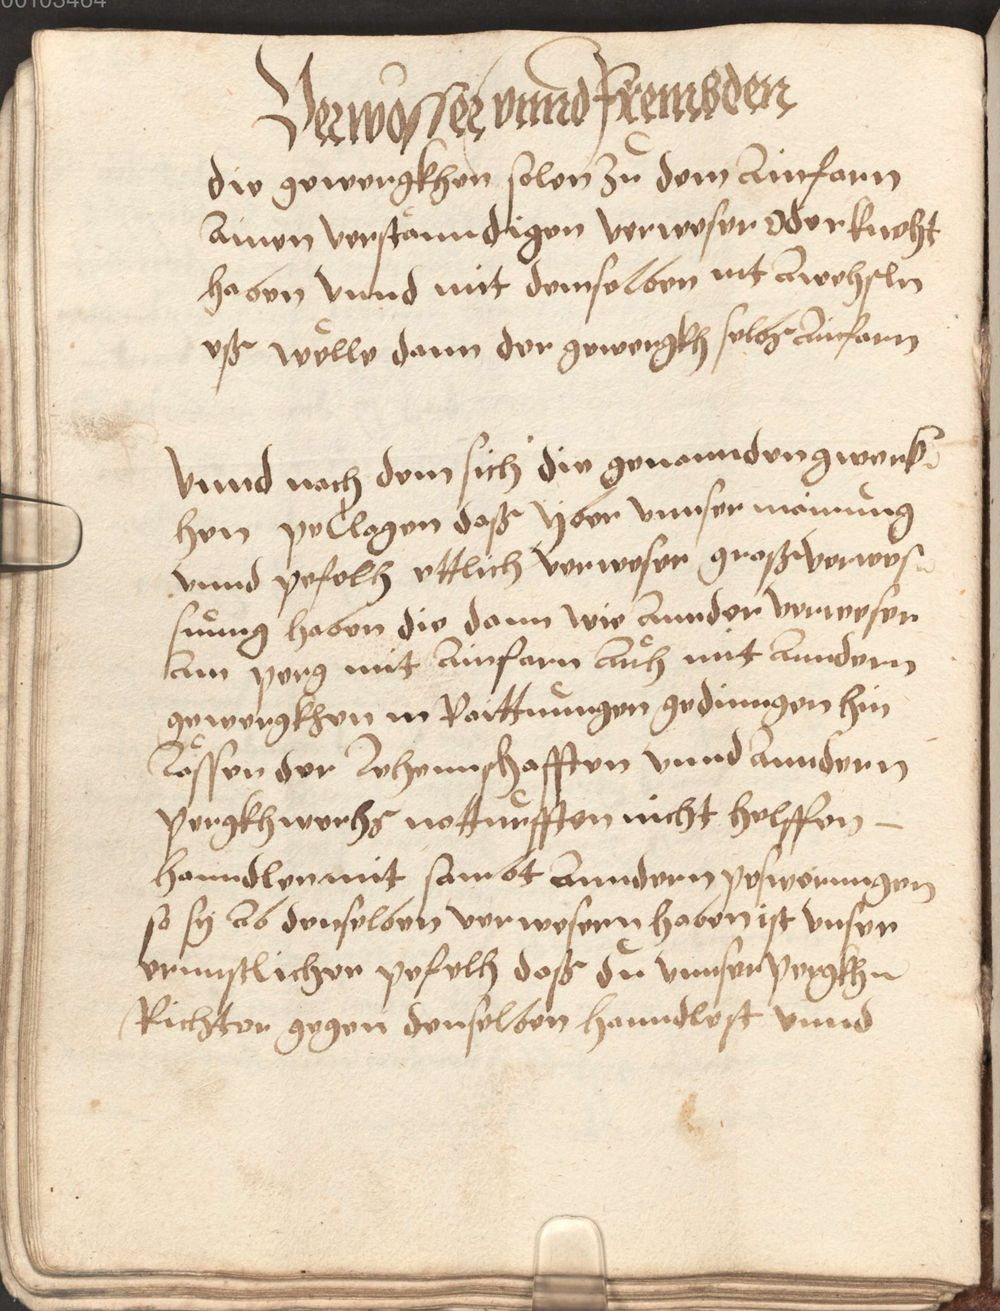 00103464
Verwesser vnnd frembden
die gewergkhen solen zu dem Ainfarn
Ainen verstanndigen verweser Oder knecht
haben vnnd mit demselben nit Awechsln
eß welle dann der gewergkh selbs Ainfarn
Vnnd nach dem sich die genannden gwerk
hen peclagen daß yber vnnser mainung
vnnd pefelh ettlich verweser groß verwes
sung haben die dann wie Annder verweser
Am perg mit Ainfarn Auch mit Anndern
gewergkhen in Raittungen gedinngen hin
Lassen der Lehennschafften vnnd Anndern
pergkhwerchs notturfften nicht helffen
hanndlen mit sambt Anndern peswerungen
so sy Ab denselben verwesern haben ist vnser
ernnstlicher pefelh daß du vnnser pergkh
Richter gegen denselben hanndlest vnnd